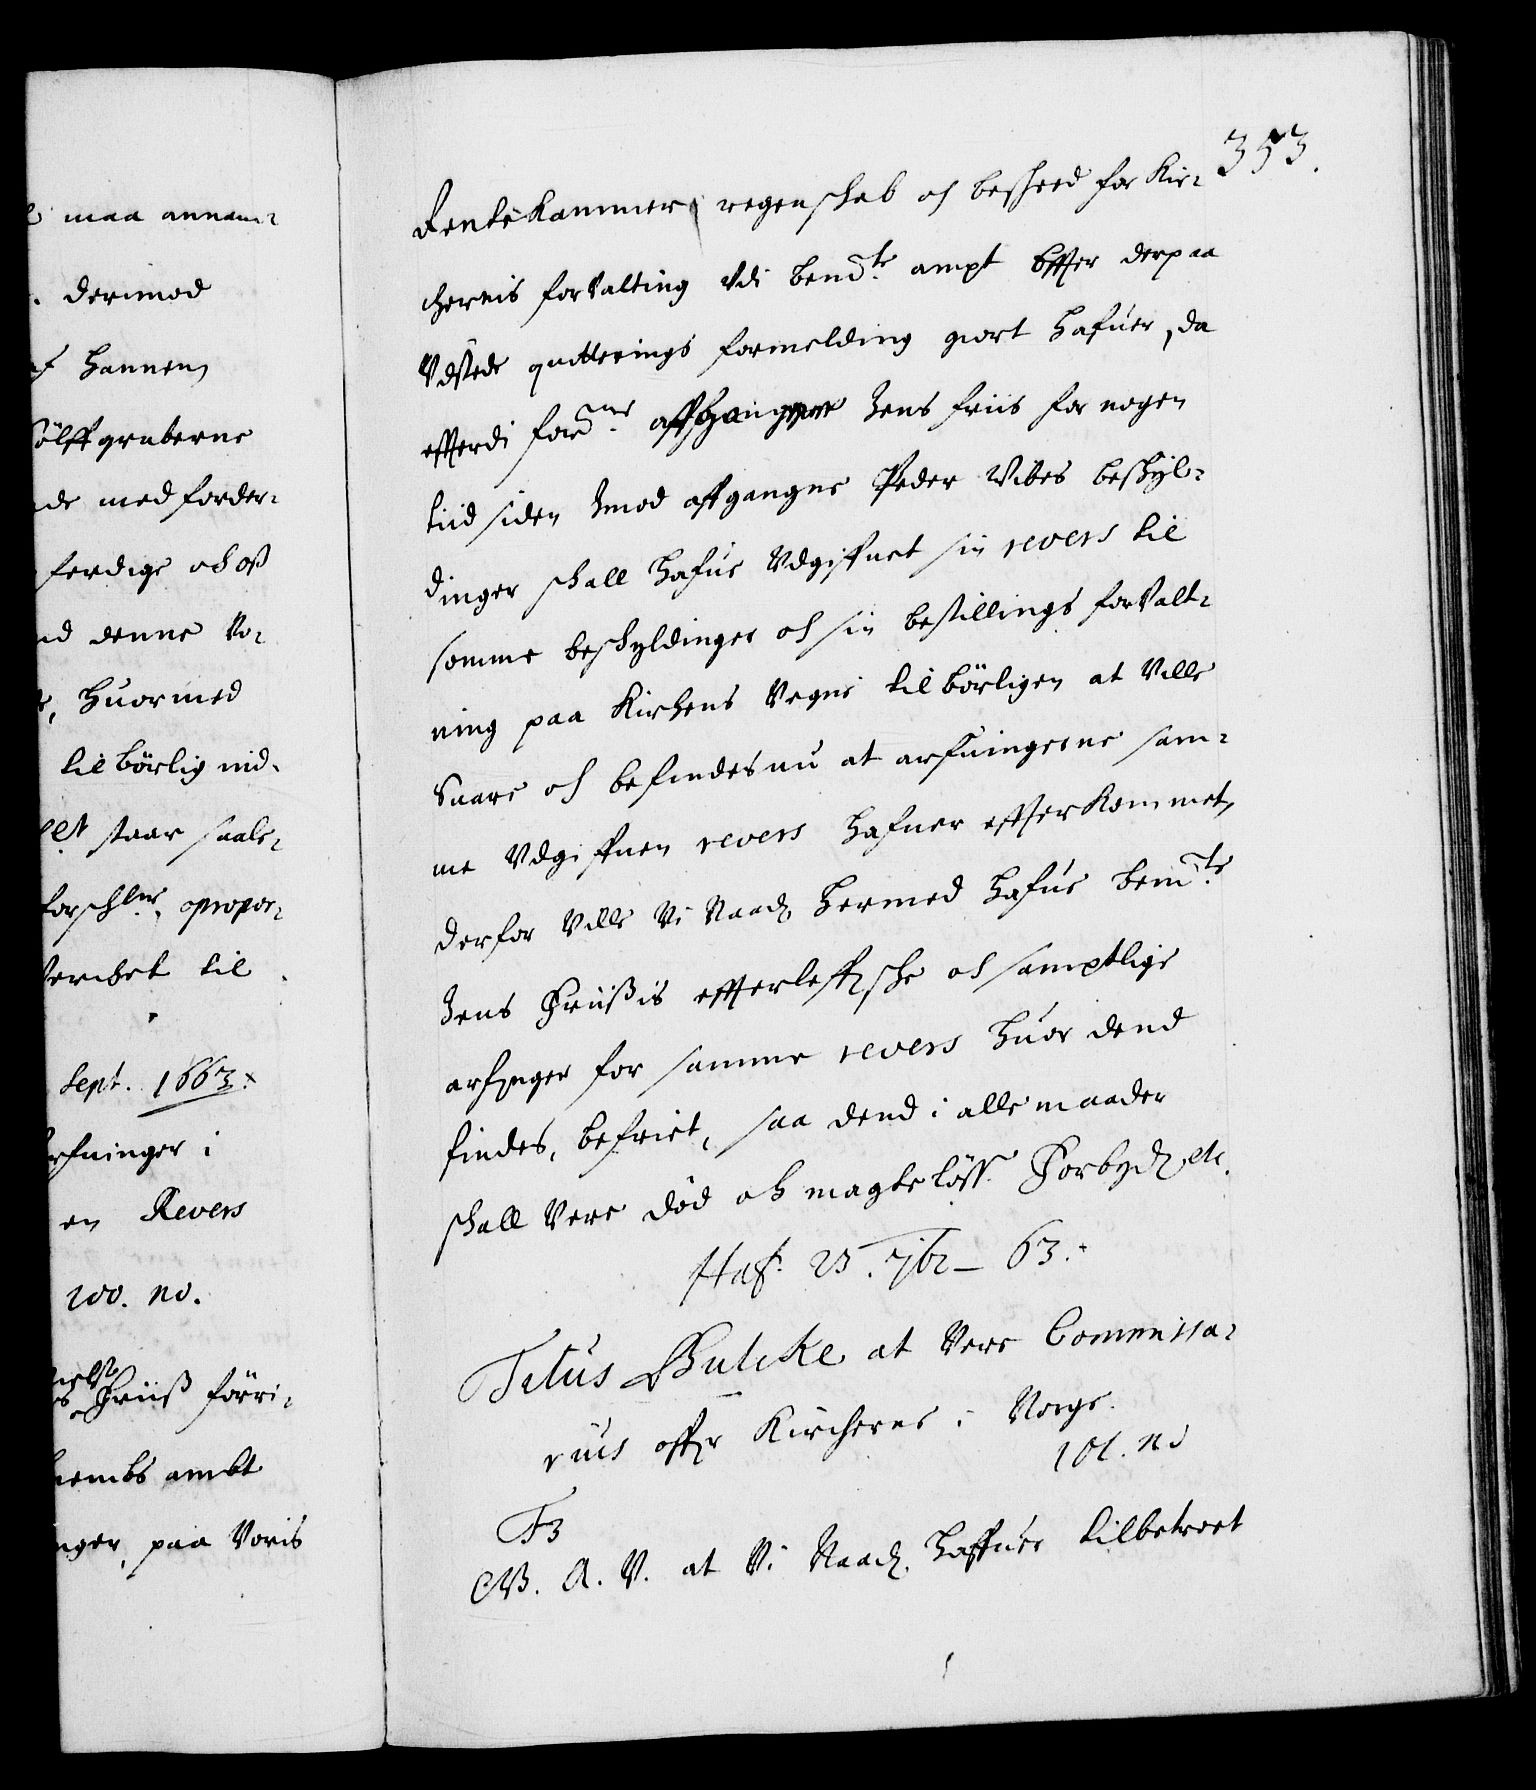 maa annam¬
derimod
af hannem
Sölffgruberne
med forder¬
ferdige och oß
denne Vo¬
huormed
tilbörlig ind¬
staar saale¬
opropor¬
til
Sept. 1663.
arfuinger i
en Revers
100. no.
Friiß förri¬
ambt
paa Voris
353.
Rentekammer regenschab och beskeed for Kir¬
chernis forvalting udi bemte ampt effter derpaa
Udstede qvitterings formelding giort hafuer, da
efftterdi forne affgangne Jens friis for nogen
tiid siden Imod affgangne Peder Vibes beskyl¬
dinger schall hafue Udgiffuet sin revers til
somme beskyldinger och sin bestillings forvalt¬
ning paa Kirchens Vegne tilbörligen at Ville
Suare och befindes nu at arfuingerne sam¬
me Udgiffuen revers hafuer effterkommet,
derfor Ville Vi Naadh. hermed hafue bemte
Jens Friißis effterleffuische och samptlige
arfinger for samme revers huor dend
findes, befriet, saa dend i alle maader
schall Vere död och magteslöß. Forbydh. etc.
Haf. 23. 7br. 63.
Titus Bulche at Vere Commissa¬
rius offr Kircherne i Norge.
101. no
F3
G. A. V. at Vi Naadh. haffuer tilbetroet